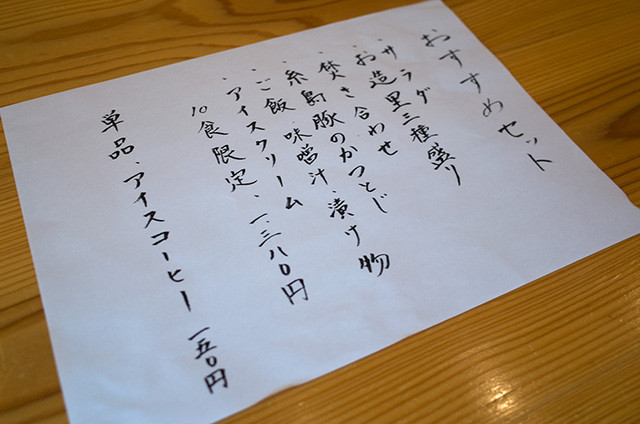 おすすめセット
・サラダ
・お造里三種盛り
・焚き合わせ
・糸島豚のかつとじ
・ご飯・味噌汁・漬け物
・アイスクリーム
10食限定、一、三八〇円
単品、アイスコーヒー 一五〇円